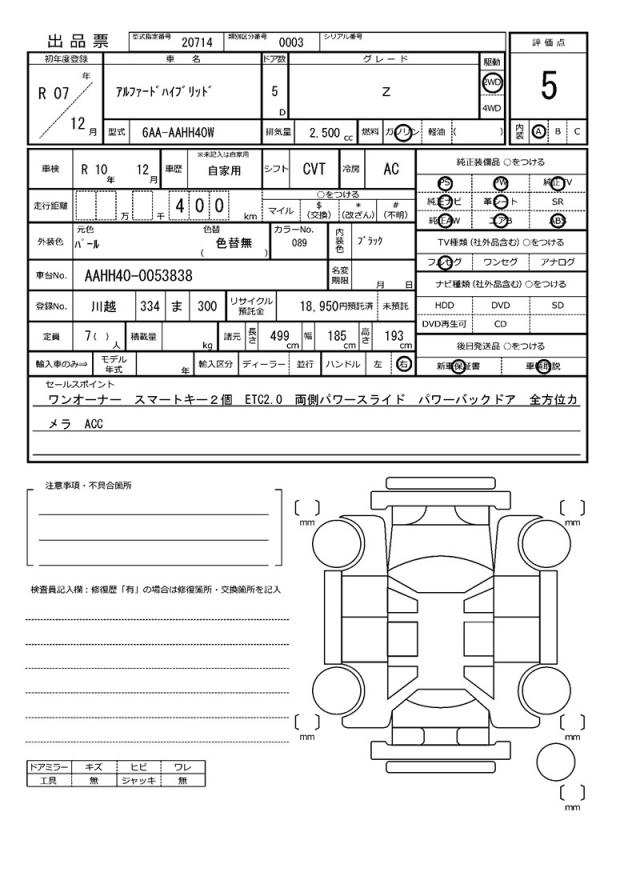 出品票 型式指定番号 20714 類別区分番号 0003 シリアル番号
評価点
初年度登録 車名 ドア数 グレード 駆動
R 07 年 12 月 アルファードハイブリッド 5 D Z 2WD 4WD
5
型式 6AA-AAHH40W 排気量 2,500 cc 燃料 ガソリン 軽油 ( )
内装 A B C
車検 R 10 年 12 月 車歴 ※未記入は自家用 自家用 シフト CVT 冷房 AC
純正装備品 ○をつける
PS PW 純正TV
走行距離 万 千 4 0 0 km ○をつける マイル $ (交換) * (改ざん) # (不明)
純正ナビ 革シート SR
純正AW エアB ABS
外装色 元色 パール 色替 ( 色替無 ) カラーNo. 089 内装色 ブラック
TV種類 (社外品含む) ○をつける
フルセグ ワンセグ アナログ
車台No. AAHH40-0053838 名変期限 月 日
ナビ種類 (社外品含む) ○をつける
登録No. 川越 334 ま 300 リサイクル預託金 18,950円預託済 未預託
HDD DVD SD
DVD再生可 CD
定員 7( ) 人 積載量 kg 諸元 長さ 499 cm 幅 185 cm 高さ 193 cm
後日発送品 ○をつける
輸入車のみ⇒ モデル年式 年 輸入区分 ディーラー 並行 ハンドル 左 右
新車保証書 車輌取説
セールスポイント
ワンオーナー スマートキー2個 ETC2.0 両側パワースライド パワーバックドア 全方位カ
メラ ACC
注意事項・不具合箇所
mm mm
検査員記入欄：修復歴「有」の場合は修復箇所・交換箇所を記入
mm mm
ドアミラー キズ ヒビ ワレ
工具 無 ジャッキ 無
mm